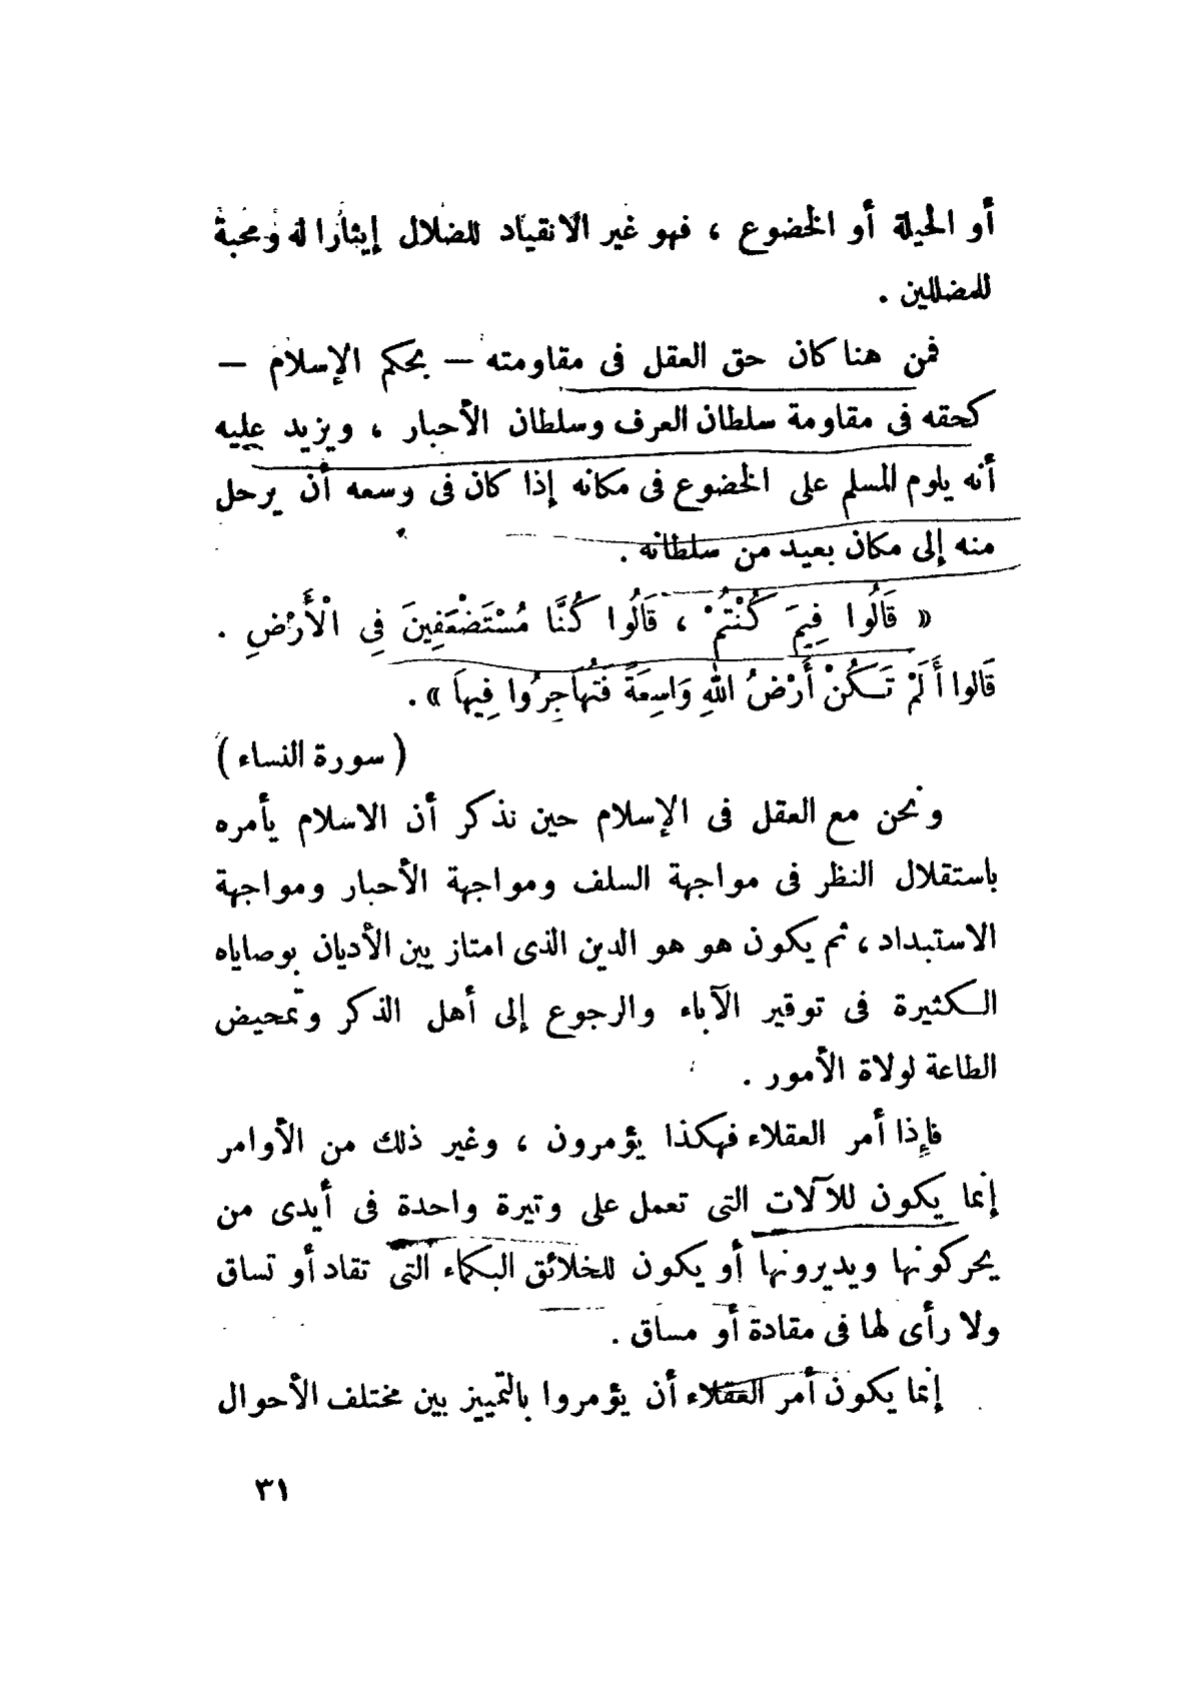 أو الحيلة أو الخضوع ، فهو غير الانقياد للضلال إيثارا له ومحبة
للمضللين .
فمن هنا كان حق العقل فى مقاومته — بحكم الإسلام —
كحقه فى مقاومة سلطان العرف وسلطان الأحبار ، ويزيد عليه
أنه يلوم المسلم على الخضوع فى مكانه إذا كان فى وسعه أن يرحل
منه إلى مكان بعيد من سلطانه .
« قَالُوا فِيمَ كُنْتُمْ ، قَالُوا كُنَّا مُسْتَضْعَفِينَ فِى الْأَرْضِ .
قَالوا أَلَمْ تَكُنْ أَرْضُ اللهِ وَاسِعَةً فَتُهَاجِرُوا فِيهَا » .
( سورة النساء )
ونحن مع العقل فى الإسلام حين نذكر أن الاسلام يأمره
باستقلال النظر فى مواجهة السلف ومواجهة الأحبار ومواجهة
الاستبداد ، ثم يكون هو هو الدين الذى امتاز بين الأديان بوصاياه
الكثيرة فى توقير الآباء والرجوع إلى أهل الذكر وتمحيض
الطاعة لولاة الأمور .
فإذا أمر العقلاء فهكذا يؤمرون ، وغير ذلك من الأوامر
إنما يكون للآلات التى تعمل على وتيرة واحدة فى أيدى من
يحركونها ويديرونها أو يكون للخلائق البكماء التى تقاد أو تساق
ولا رأى لها فى مقادة أو مساق .
إنما يكون أمر العقلاء أن يؤمروا بالتمييز بين مختلف الأحوال
٣١